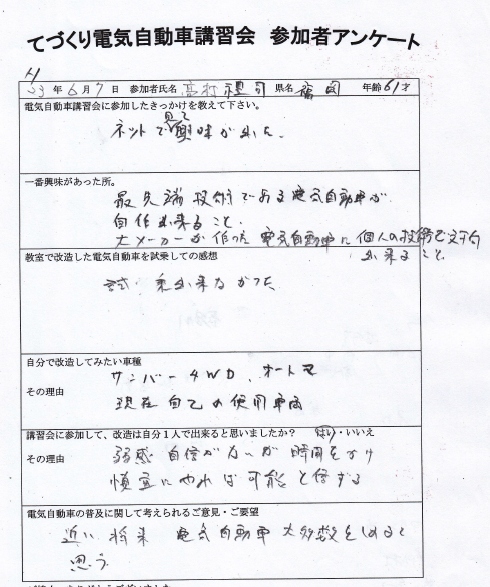 てづくり電気自動車講習会 参加者アンケート
H
23年6月7日 参加者氏名 高村 県名 福岡 年齢61才
電気自動車講習会に参加したきっかけを教えて下さい。
ネットで見て興味が出た。
一番興味があった所。
最先端技術である電気自動車が
自作出来ること、
大メーカーが作った電気自動車に個人の技術で
出来ること
教室で改造した電気自動車を試乗しての感想
試乗出来なかった
自分で改造してみたい車種
サンバー4WD、オートマ
その理由
現在自己の使用車両
講習会に参加して、改造は自分1人で出来ると思いましたか? はい・いいえ
その理由
自信がないが時間をかけ
慎重にやれば可能と信ずる
電気自動車の普及に関して考えられるご意見・ご要望
近い将来 電気自動車 大多数をしめると
思う